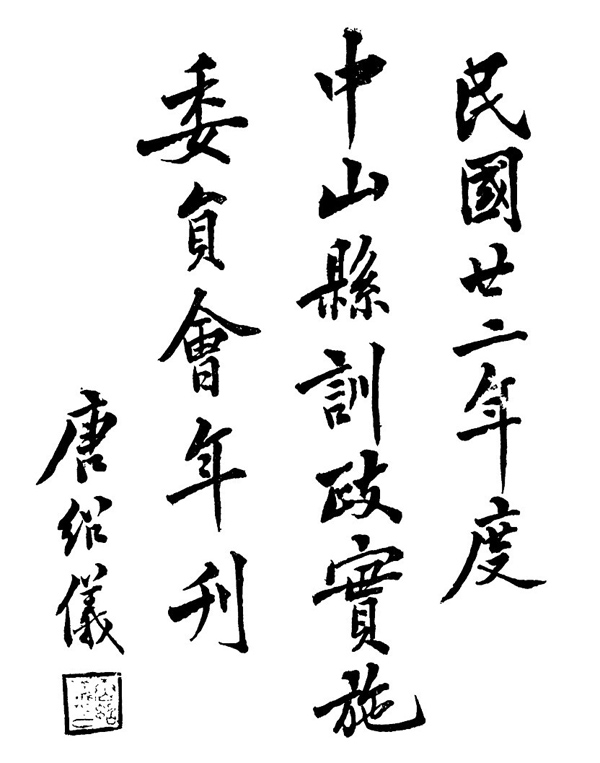 民國廿二年度
中山縣訓政實施
委員會年刊
唐紹儀